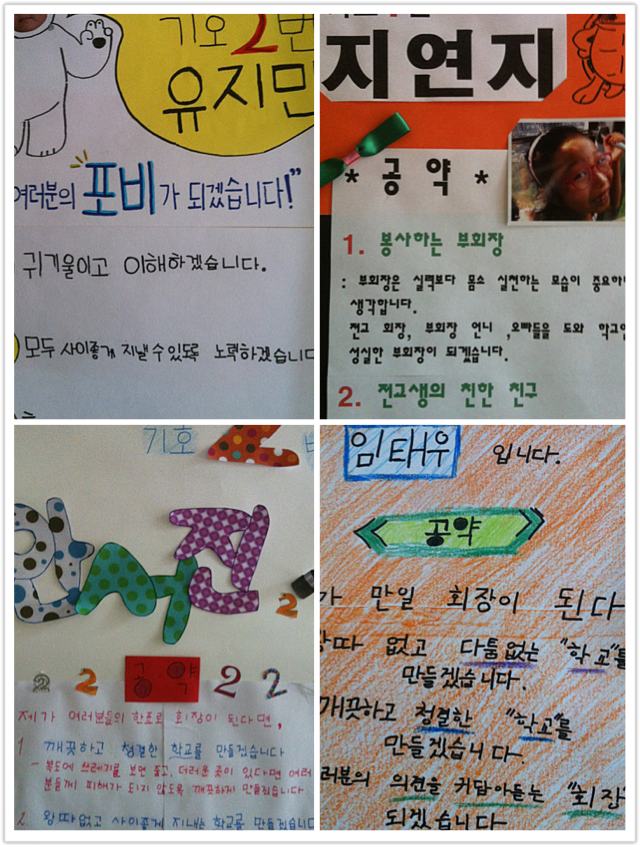 기호 2번
유지민
여러분의 포비가 되겠습니다!"
귀기울이고 이해하겠습니다.
모두 사이좋게 지낼 수 있도록 노력하겠습니다
지연지
* 공약 *
1. 봉사하는 부회장
: 부회장은 실력보다 몸소 실천하는 모습이 중요하
생각합니다.
전교 회장, 부회장 언니 ,오빠들을 도와 학교인
성실한 부회장이 되겠습니다.
2. 전교생의 친한 친구
기호 2
서진
2
2 2 공약 2 2
제가 여러분들의 한표로 회장이 된다면,
1 깨끗하고 청결한 학교를 만들겠습니다
- 복도에 쓰레기를 보면 줍고, 더러운 곳이 있다면 여러
분들께 피해가 되지 않도록 깨끗하게 만들겠습니다
2 왕따없고 사이좋게 지내는 학교를 만들겠습니다
임태우 입니다.
공약
가 만일 회장이 된다
왕따 없고 다툼없는 "학교"를
만들겠습니다.
깨끗하고 청결한 "학교"를
만들겠습니다.
러분의 의견을 귀담아듣는 "회장
되겠습니다